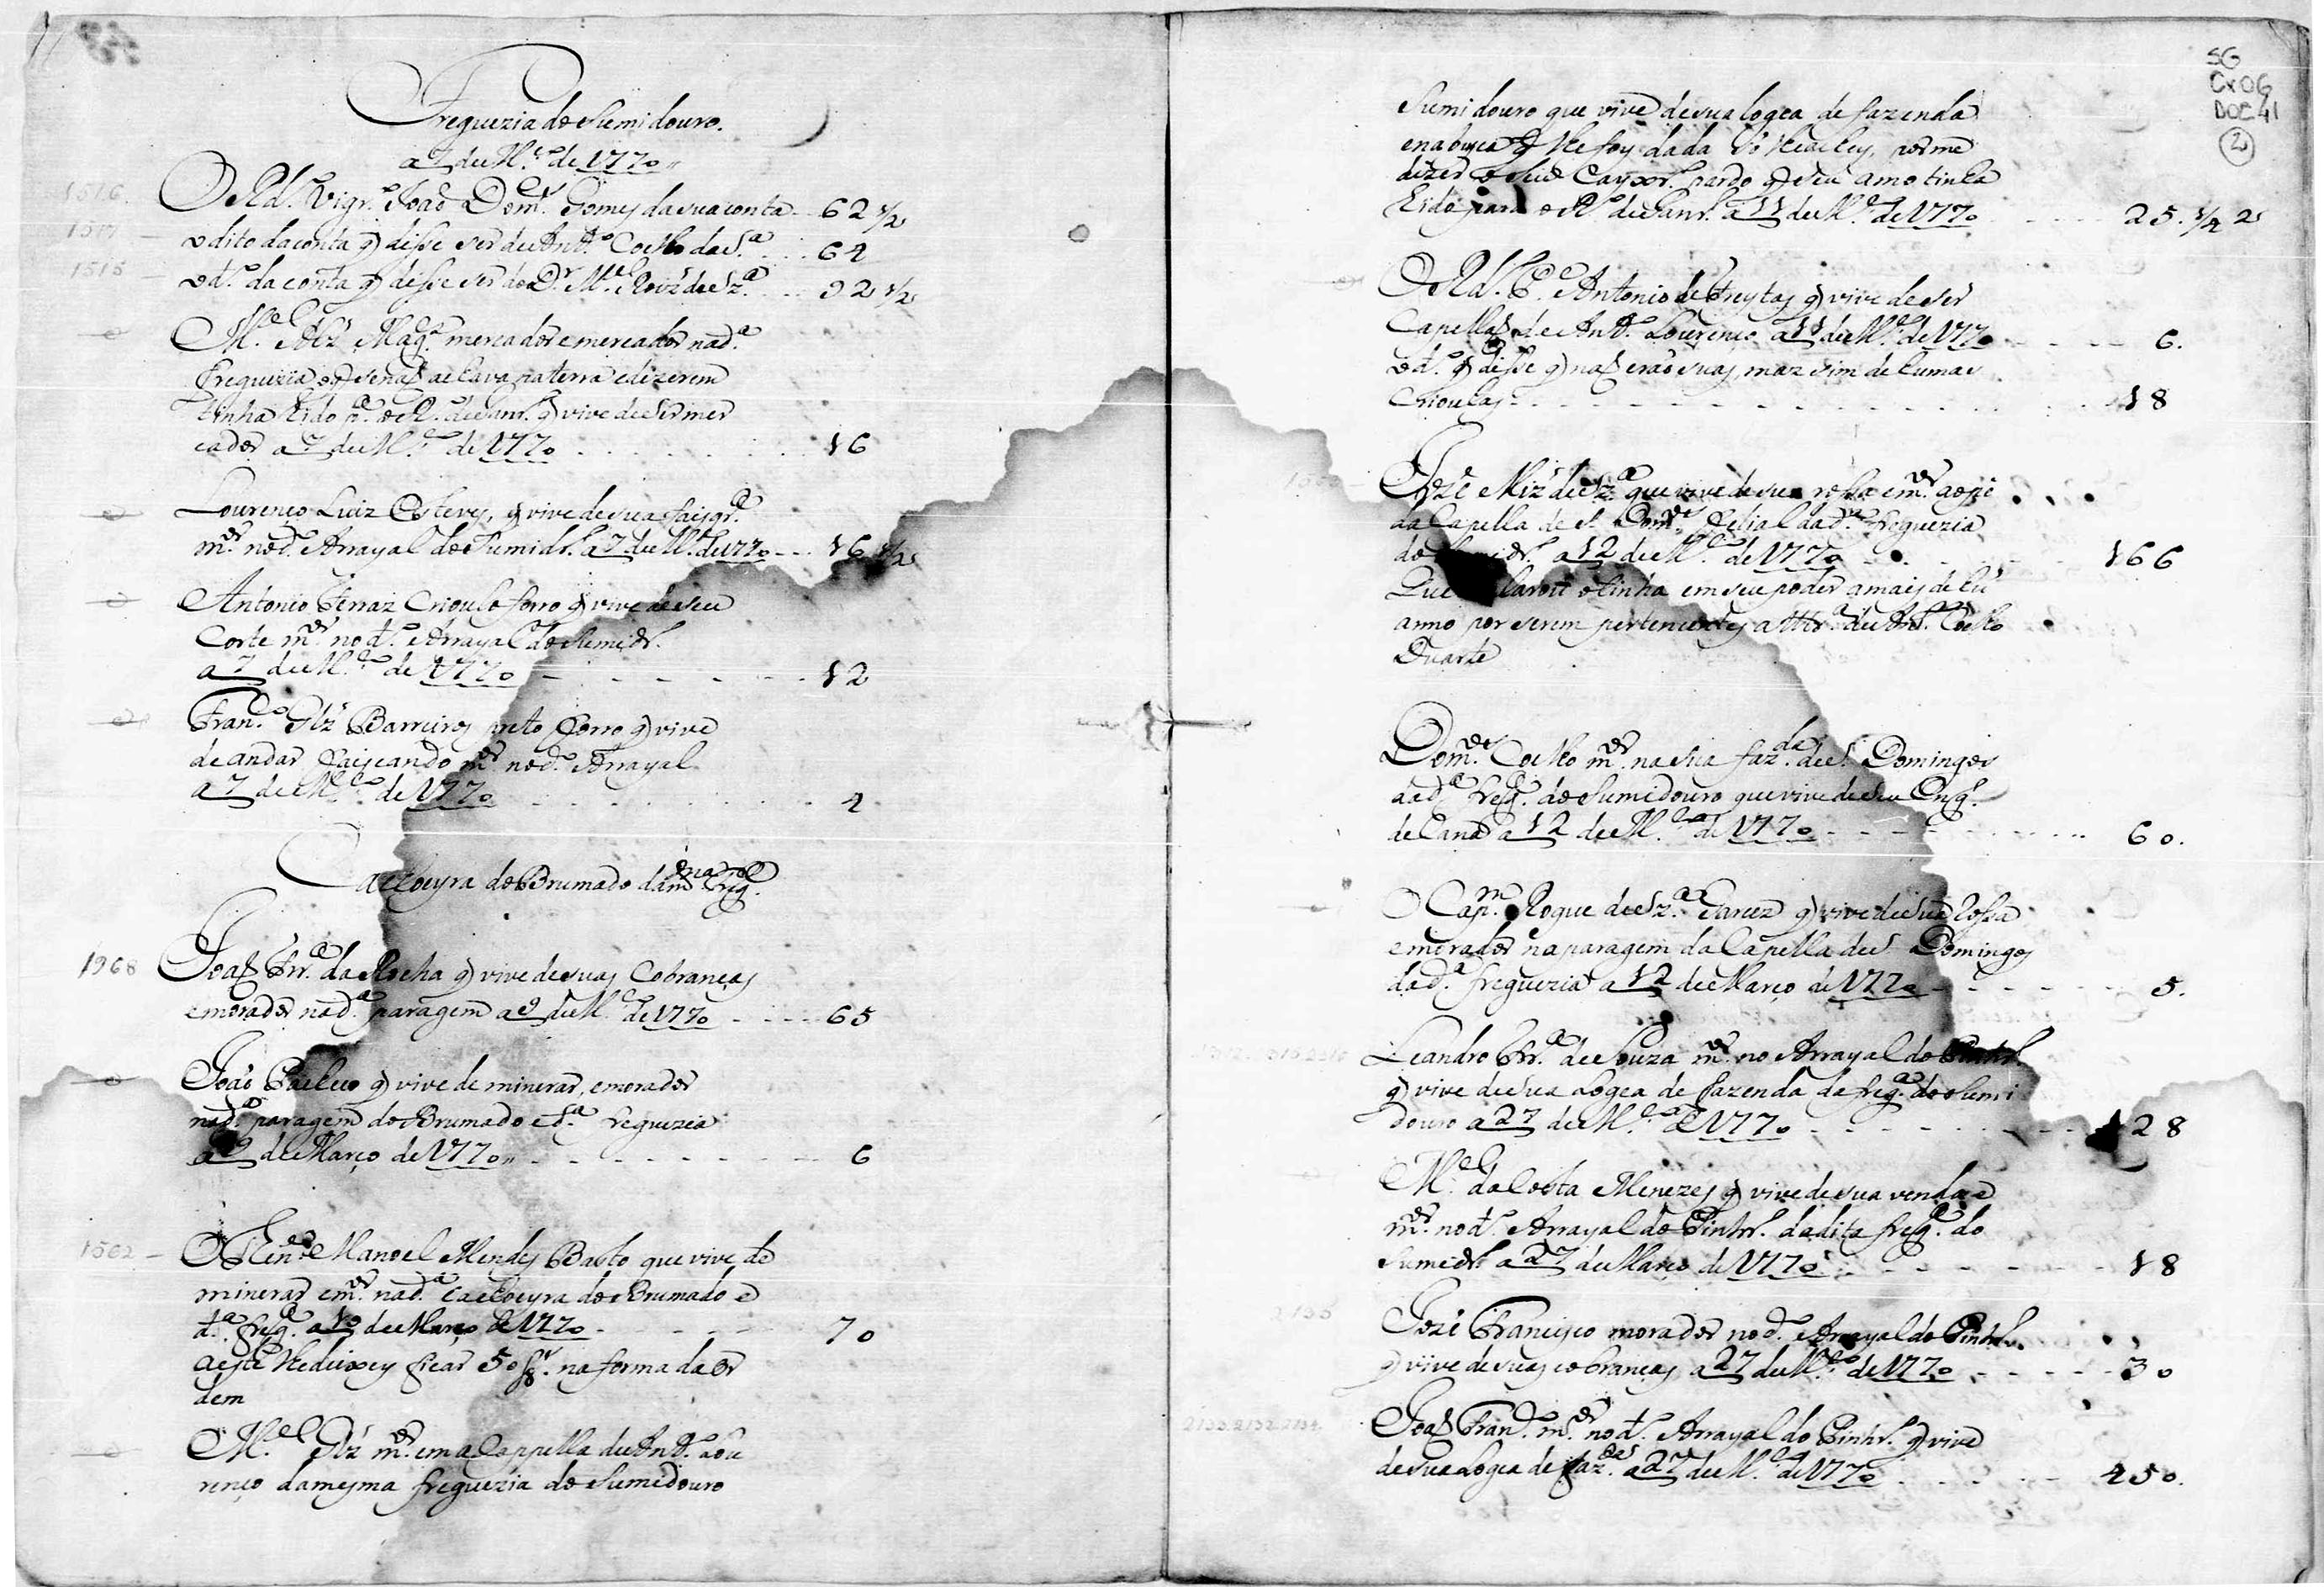 Freguezia do Sumidouro.
a 7 de M.ço de 1770
1516. O Rd.º Vigr.º João Dom.es Gomes da sua conta 62 1/2
1517 o dito da conta q̃ disse ser de Ant.º Coelho da S.ª 64
1515 o d.º da conta q̃ disse ser do D.r M.el Roiz de Sz.ª 92 1/2
M.el Alz' mercador e mercador na d.ª
freguezia, q̃ se não achava na terra e dizerem
tinha hido p.ª o R.º de Janr.º q̃ vive de ser mer
cador a 7 de M.ço de 1770 16
Lourenço Luiz Esteves, q̃ vive de sua faisqr.ª
m.or no d.º Arrayal do Sumidr.º a 7 de M.ço de 1770 16 1/2
Antonio Ferraz Crioulo forro q̃ vive de seu
Corte m.or no d.º Arrayal do Sumidr.º
a 7 de M.ço de 1770 12
Fran.co Glz' Barreiros preto forro q̃ vive
de andar faiscando m.or no d.º Arrayal
a 7 de M.ço de 1770 4
Cachoeyra do Brumado da m.ma Freg.ª
1968 João Frr.ª da Rocha q̃ vive de suas Cobranças
e morador na d.ª paragem a 9 de M.ço de 1770 65
João Pacheco q̃ vive de minerar, e morador
na d.ª paragem do Brumado e d.ª freguezia
a 9 de Março de 1770 6
1502 O Then.e Manoel Mendes Basto que vive de
minerar e m.or na d.ª Cachoeyra do Brumado e
d.ª freg.ª a 10 de Março de 1770 70
a este lhe deixey ficar 50/8.as na forma da or
dem
M.el Glz' m.or em a Cappella de Ant.º Lou
renço da mesma freguezia do Sumidouro
SG
Cx 06
DOC 41
2
Sumidouro que vive de sua logea de fazenda
q̃ lhe foy dada por me
dizer o seu Cayxr.º pardo q̃ seu amo tinha
hido para o R.º de Janr.º a 11 de M.ço de 1770 25. 1/4 2
O Rd.º P.e Antonio de Freytas q̃ vive de ser
Capellão de Ant.º Lourenço a 11 de M.ço de 1770 6.
o d.º q̃ disse q̃ não erão suas, maz sim de humas
Crioulas 18
Jozê Miz' de Sz.ª que vive de sua rossa e m.or ao pé
da Capella de S. Dom.os Filial da d.ª freguezia
do Sumidr.º a 12 de M.ço de 1770 166
Que declarou o tinha em seu poder a mais de hũ
anno por serem pertencentes a de Ant.º Coelho
Duarte
Dom.os Coelho m.or na sua faz.da de S. Domingos
da d.ª freg.ª do Sumidouro que vive de seu Eng.º
de Cana a 12 de M.ço de 1770 60.
O Cap.m Roque de Sz.ª Garcez q̃ vive de sua Rossa
e morador na paragem da Capella de S. Domingos
da d.ª freguezia a 12 de Março de 1770 5.
Leandro Frr.ª de Souza m.or no Arrayal do Pinhr.º
q̃ vive de sua Logea de fazenda da freg.ª do Sumi
douro a 27 de M.ço de 1770 128
M.el da Costa Menezes q̃ vive de sua venda e
m.or no d.º Arrayal do Pinhr.º da dita freg.ª do
Sumidr.º a 27 de Março de 1770 18
2135 Jozê Francisco morador no d.º Arrayal do Pinhr.º
q̃ vive de suas cobranças a 27 de M.ço de 1770 30
2133 2132 2134 João Fran.co m.or no d.º Arrayal do Pinhr.º q̃ vive
de sua Logea de faz.das a 27 de M.ço de 1770 450.